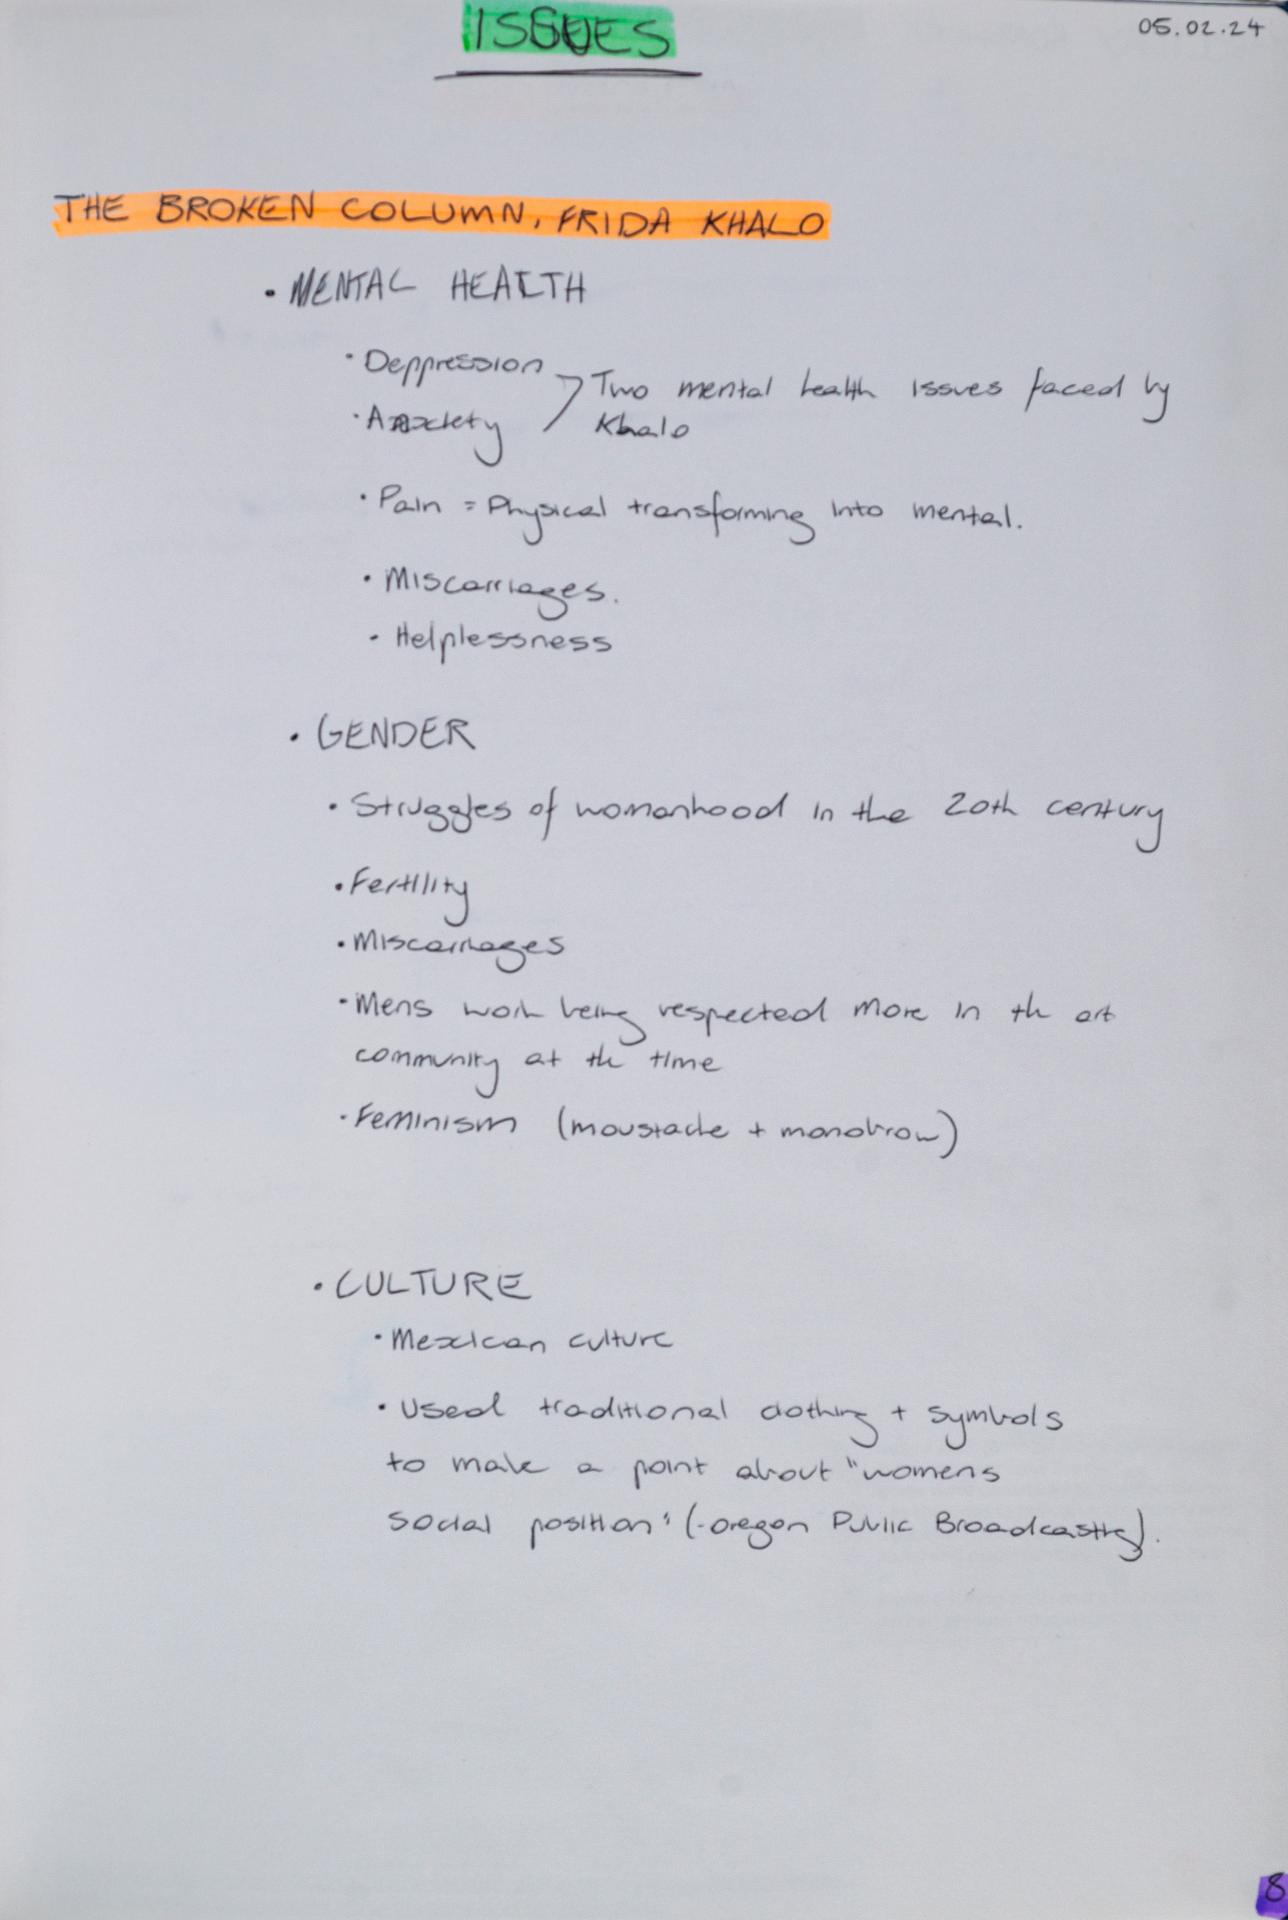 ISSUES
05.02.24
THE BROKEN COLUMN, FRIDA KHALO
• MENTAL HEALTH
• Deppression
Two mental health issues faced by
• Anxiety
Khalo
• Pain = Physical transforming into mental.
• Miscarriages.
• Helplessness
• GENDER
• Struggles of womanhood in the 20th century
• Fertility
• Miscarriages
• Mens work being respected more in the art
community at the time
• Feminism (moustache + monobrow)
• CULTURE
• Mexican culture
• Used traditional clothing + symbols
to make a point about "womens
social position" (-oregon Public Broadcasting).
8